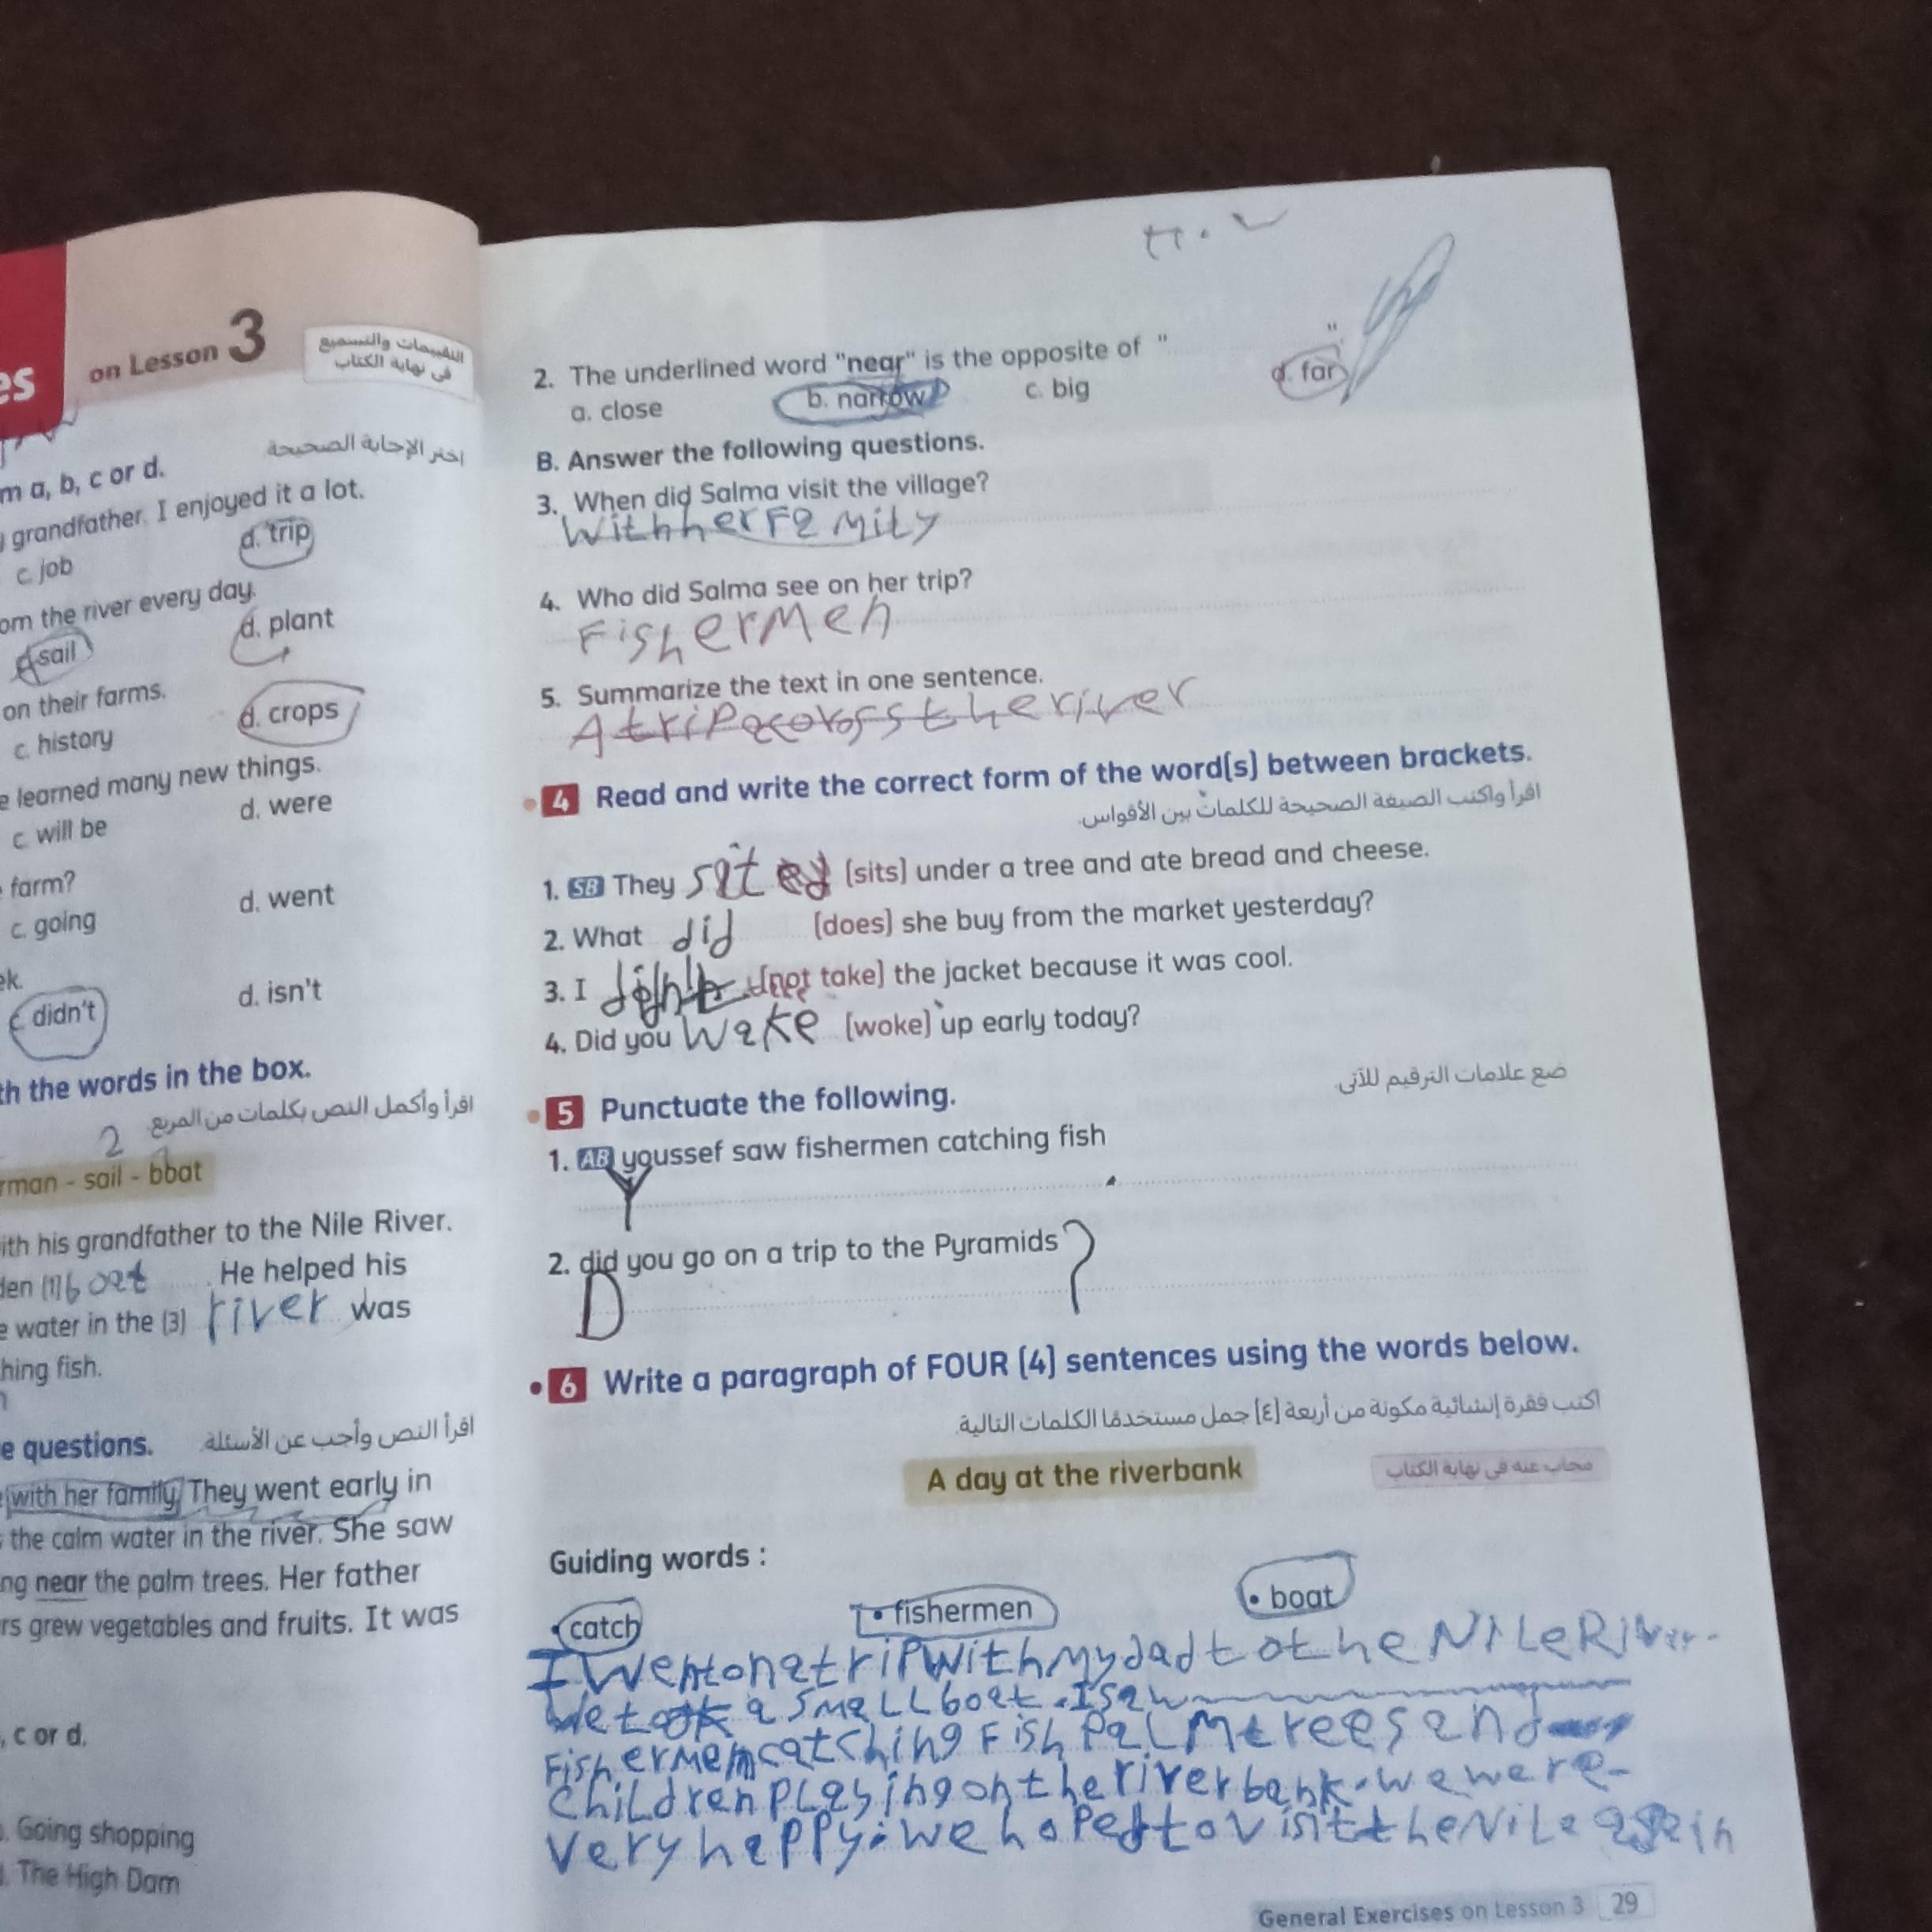 es on Lesson 3
التقييمات والتسميع
فى نهاية الكتاب
اختر الإجابة الصحيحة
m a, b, c or d.
grandfather. I enjoyed it a lot.
c. job d. trip
om the river every day.
sail d. plant
on their farms.
c. history d. crops
e learned many new things.
c. will be d. were
farm?
c. going d. went
ek.
c. didn't d. isn't
th the words in the box.
اقرأ وأكمل النص بكلمات من المربع.
2
rman - sail - boat
ith his grandfather to the Nile River.
den (1) boat . He helped his
e water in the (3) river was
hing fish.
e questions. اقرأ النص وأجب عن الأسئلة.
with her family. They went early in
the calm water in the river. She saw
ng near the palm trees. Her father
rs grew vegetables and fruits. It was
, c or d.
. Going shopping
. The High Dam
H.W
2. The underlined word "near" is the opposite of " "
a. close b. narrow c. big d. far
B. Answer the following questions.
3. When did Salma visit the village?
With her Family
4. Who did Salma see on her trip?
Fishermen
5. Summarize the text in one sentence.
A trip the river
4 Read and write the correct form of the word(s) between brackets.
اقرأ واكتب الصيغة الصحيحة للكلمات بين الأقواس.
1. SB They sat (sits) under a tree and ate bread and cheese.
2. What did (does) she buy from the market yesterday?
3. I (not take) the jacket because it was cool.
4. Did you wake (woke) up early today?
5 Punctuate the following.
ضع علامات الترقيم للآتى.
1. AB youssef saw fishermen catching fish
Y .
2. did you go on a trip to the Pyramids ?
D
6 Write a paragraph of FOUR (4) sentences using the words below.
اكتب فقرة إنشائية مكونة من أربعة (٤) جمل مستخدمًا الكلمات التالية.
A day at the riverbank
مجاب عنه فى نهاية الكتاب
Guiding words :
• catch • fishermen • boat
I went on a trip with my dad to the NiLe River.
We took a smaLL boat. I saw
Fishermen catching Fish paLm trees and
chiLdren pLaying on the river bank. we were
very happy. we hoped to visit the NiLe again
General Exercises on Lesson 3 29